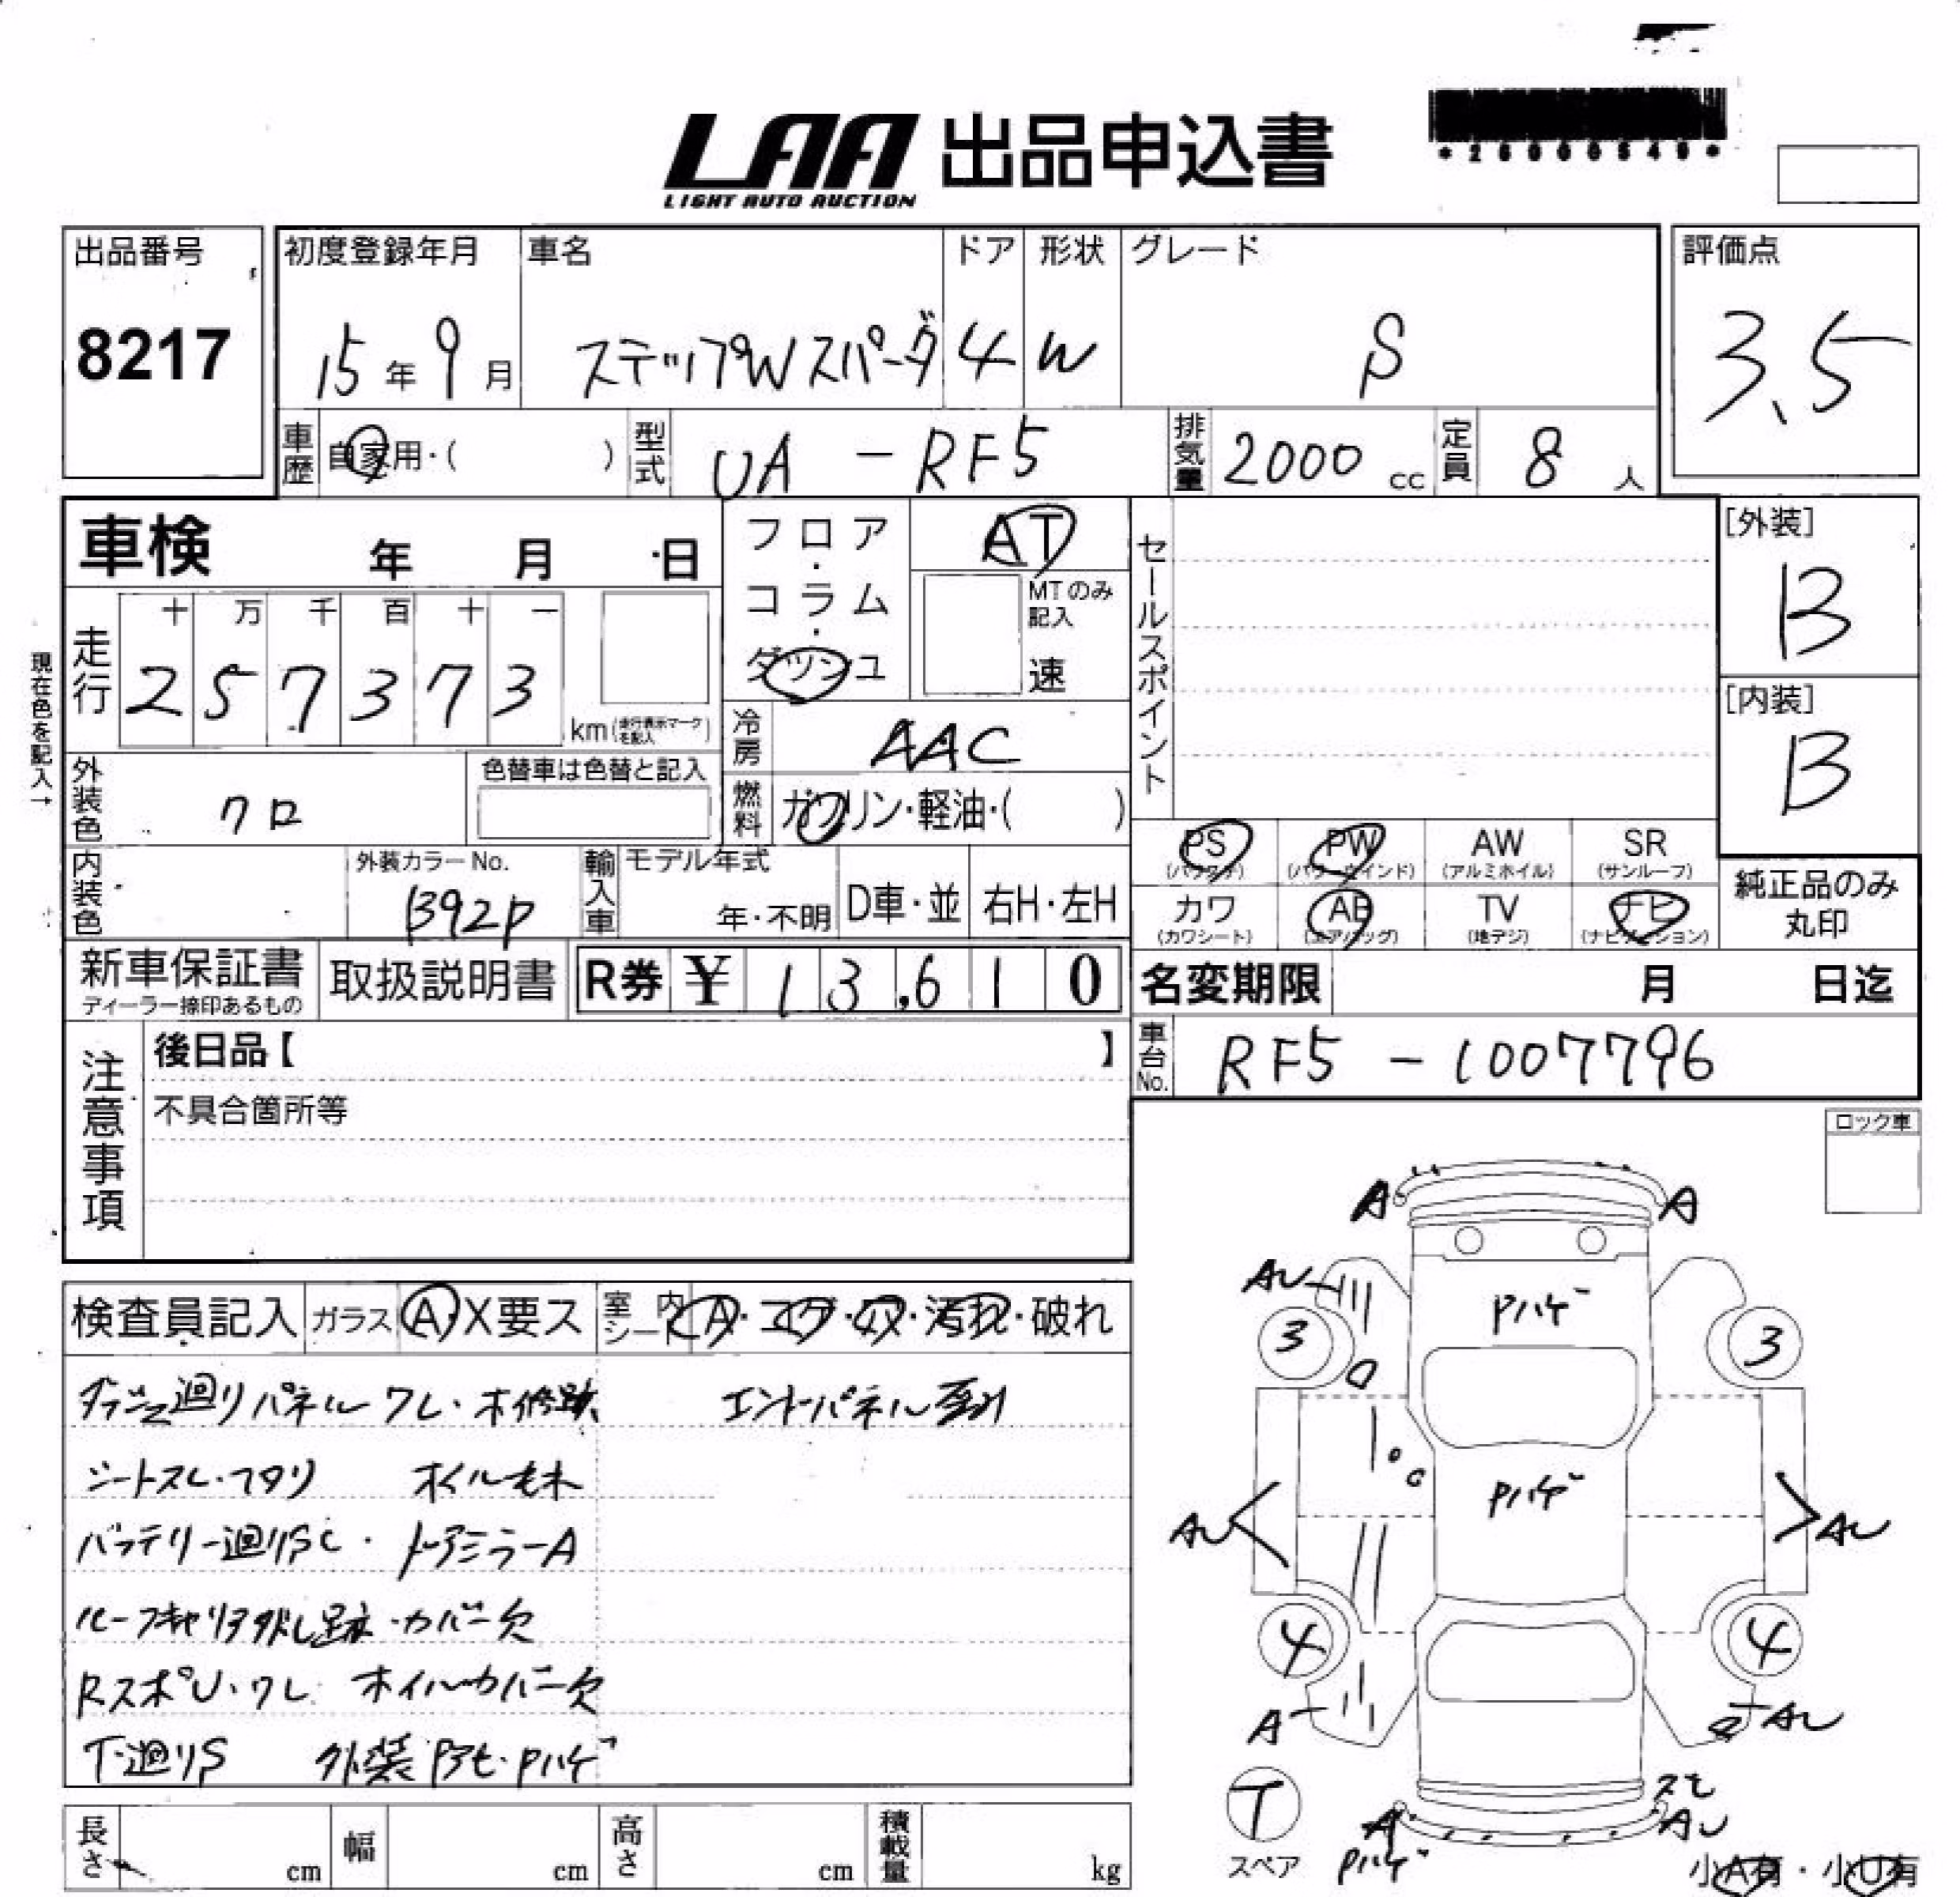 LAA 出品申込書
LIGHT AUTO AUCTION
出品番号 初度登録年月 車名 ドア 形状 グレード 評価点
8217 15年 9月 ステップWスパーダ 4 W S 3.5
車歴 自家用・( ) 型式 UA-RF5 排気量 2000cc 定員 8人
車検 年 月 日 フロア・コラム・ダッシュ AT セールスポイント [外装]
B
MTのみ記入 速
現在色を記入→
走行 十 万 千 百 十 一
2 5 7 3 7 3 km(走行表示マークを記入)
[内装]
B
冷房 AAC
外装色 クロ 色替車は色替と記入 燃料 ガソリン・軽油・( )
PS (パワステ) PW (パワーウインド) AW (アルミホイル) SR (サンルーフ)
カワ (カワシート) AB (エアバッグ) TV (地デジ) ナビ (ナビゲーション)
純正品のみ丸印
内装色 外装カラーNo. B92P 輸入車 モデル年式 年・不明 D車・並 右H・左H
新車保証書 ディーラー捺印あるもの 取扱説明書 R券 ¥ 13,610 名変期限 月 日迄
注意事項 後日品【 】 車台No. RF5-1007796
不具合箇所等
ロック車
検査員記入 ガラス A・X要ス 室内シート A・コゲ・穴・汚れ・破れ
廻りパネルワレ・ エンドパネル
シートスレ・ヘタリ
バッテリー廻りSC・ドアミラーA
ルーフキャリア外し跡・カバー欠
Rスポ U・ワレ ホイルカバー欠
下廻りS 外装 Pハゲ
A A
AU Pハゲ
3 3
Pハゲ
AU AU
4 4
A AU
T スペア
A AU
Pハゲ
小A有・小U有
長さ cm 幅 cm 高さ cm 積載量 kg